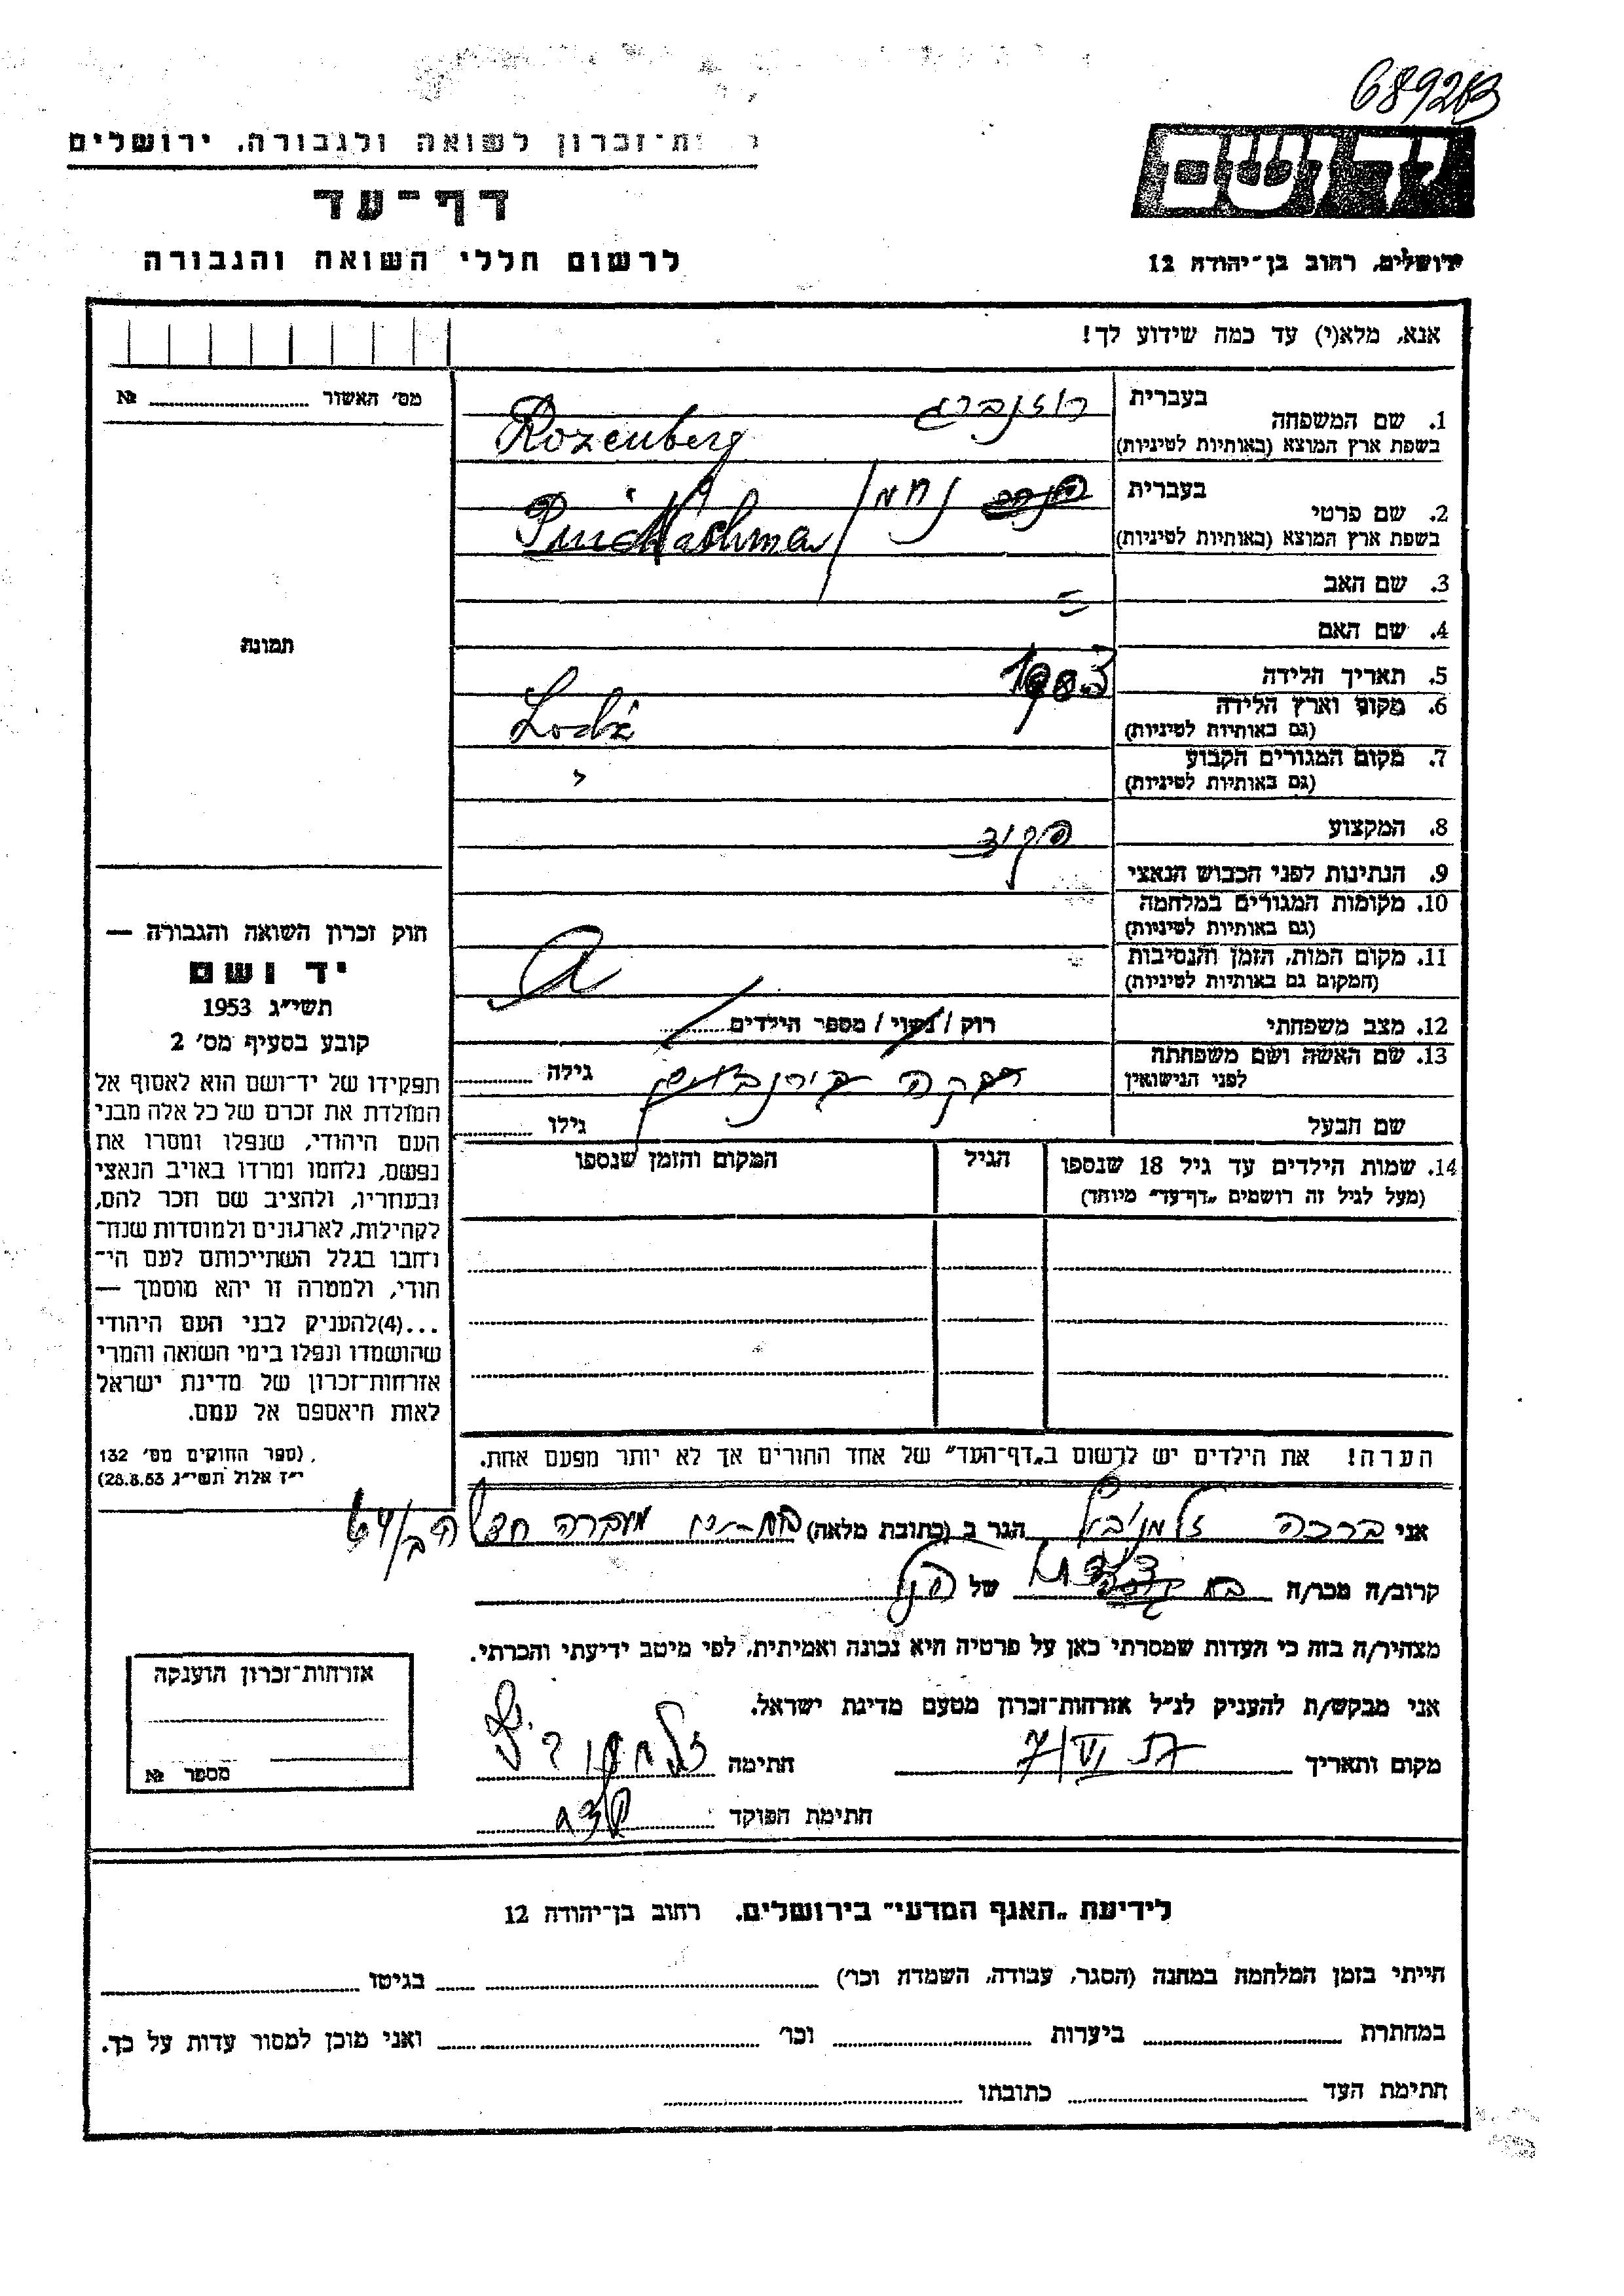 68928
ת־זכרון לשואה ולגבורה, ירושלים
דף־עד
לרשום חללי השואה והגבורה
יד ושם
ירושלים, רחוב בן־יהודה 12
אנא, מלא(י) עד כמה שידוע לך!
מס' האשור № 
תמונה
1. שם המשפחה בעברית רוזנברג
בשפת ארץ המוצא (באותיות לטיניות) Rozenberg
2. שם פרטי בעברית נחמן
בשפת ארץ המוצא (באותיות לטיניות) Nachman
3. שם האב =
4. שם האם
5. תאריך הלידה
6. מקום וארץ הלידה Lodź
(גם באותיות לטיניות)
7. מקום המגורים הקבוע
(גם באותיות לטיניות)
8. המקצוע פקיד
9. הנתינות לפני הכבוש הנאצי
10. מקומות המגורים במלחמה
(גם באותיות לטיניות)
11. מקום המות, הזמן והנסיבות
(המקום גם באותיות לטיניות)
12. מצב משפחתי רוק / נשוי / מספר הילדים
13. שם האשה ושם משפחתה רבקה בירנבוים גילה
לפני הנישואין
שם הבעל גילו
14. שמות הילדים עד גיל 18 שנספו הגיל המקום והזמן שנספו
(מעל לגיל זה רושמים "דף־עד" מיוחד)
הערה! את הילדים יש לרשום ב"דף־העד" של אחד ההורים אך לא יותר מפעם אחת.
חוק זכרון השואה והגבורה —
יד ושם
תשי"ג 1953
קובע בסעיף מס' 2
תפקידו של יד־ושם הוא לאסוף אל
המולדת את זכרם של כל אלה מבני
העם היהודי, שנפלו ומסרו את
נפשם, נלחמו ומרדו באויב הנאצי
ובעוזריו, ולהציב שם וזכר להם,
לקהילות, לארגונים ולמוסדות שנח־
רבו בגלל השתייכותם לעם הי־
הודי, ולמטרה זו יהא מוסמך —
...(4) להעניק לבני העם היהודי
שהושמדו ונפלו בימי השואה והמרי
אזרחות־זכרון של מדינת ישראל
לאות היאספם אל עמם.
(ספר החוקים מס' 132,
י"ז אלול תשי"ג 28.8.53)
אני ברכה הגר ב (כתובת מלאה)
קרוב/ה מכר/ה של הנ"ל
מצהיר/ה בזה כי העדות שמסרתי כאן על פרטיה היא נכונה ואמיתית, לפי מיטב ידיעתי והכרתי.
אני מבקש/ת להעניק לנ"ל אזרחות־זכרון מטעם מדינת ישראל.
מקום ותאריך חתימה
חתימת הפוקד
אזרחות־זכרון הוענקה
מספר №
לידיעת "האגף המדעי" בירושלים, רחוב בן־יהודה 12
הייתי בזמן המלחמה במחנה (הסגר, עבודה, השמדה וכו') בגיטו
במחתרת ביערות וכו' ואני מוכן למסור עדות על כך.
חתימת העד כתובתו